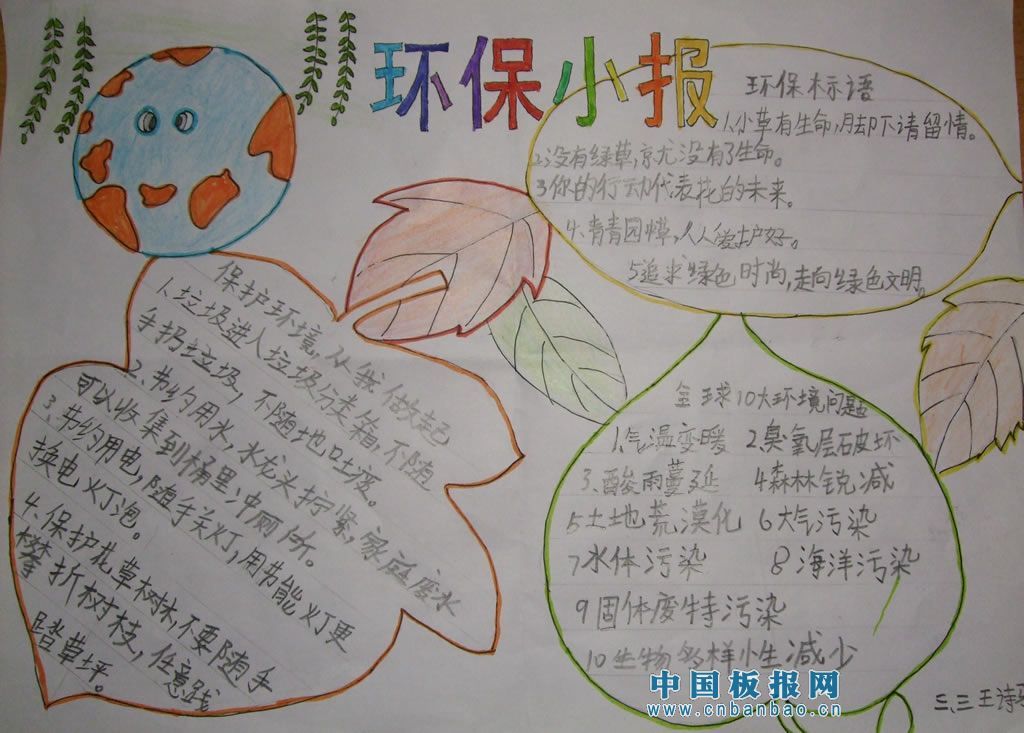 环保小报
环保标语
1.小草有生命,脚下请留情。
2.没有绿草,就没有了生命。
3你的行动代表花的未来。
4、青青园草,人人爱护好。
5追求绿色时尚,走向绿色文明。
保护环境,从我做起
1.垃圾进入垃圾分类箱,不随
手扔垃圾,不随地吐痰。
2、节约用水,水龙头拧紧,家庭废水
可以收集到桶里,冲厕所。
3、节约用电,随手关灯,用节能灯更
换电灯泡。
4、保护花草树林,不要随手
攀折树枝,任意践
踏草坪。
全球10大环境问题
1、气温变暖 2、臭氧层破坏
3、酸雨蔓延 4森林锐减
5土地荒漠化 6大气污染
7水体污染 8海洋污染
9固体废特污染
10生物多样小生减少
中国板报网
www.cnbanbao.cn
三、三王诗